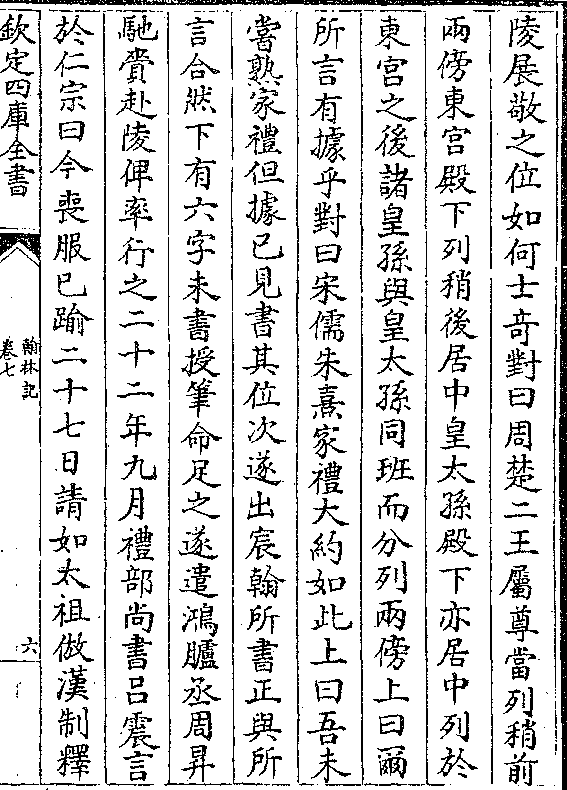 陵展敬之位如何士竒對曰周楚二王屬尊當列稍前
兩傍東宫殿下列稍後居中皇太孫殿下亦居中列於
東宫之後諸皇孫與皇太孫同班而分列兩傍上曰爾
所言有據乎對曰宋儒朱熹家禮大約如此上曰吾未
嘗熟家禮但據已見書其位次遂出宸翰所書正與所
言合狀下有六字未書授筆命足之遂遣鴻臚丞周昇
馳賫赴陵俾率行之二十二年九月禮部尚書吕震言
於仁宗曰今喪服已踰二十七日請如太祖倣漢制釋
欽定四庫全書
翰林記
卷七
六